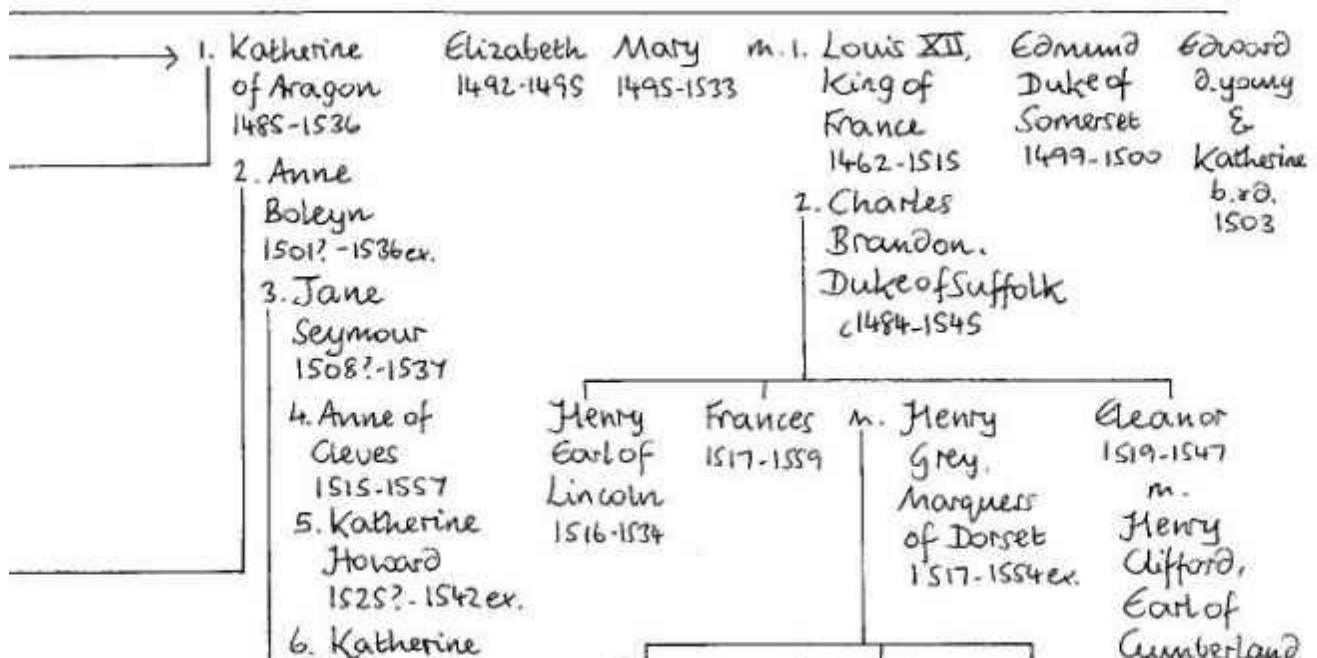 1. Katherine
of Aragon
1485-1536
2. Anne
Boleyn
1501?-1536 ex.
3. Jane
Seymour
1508?-1537
4. Anne of
Cleves
1515-1557
5. Katherine
Howard
1525?-1542 ex.
6. Katherine
Elizabeth
1492-1495
Mary
1495-1533
m. 1. Louis XII,
King of
France
1462-1515
2. Charles
Brandon.
Duke of Suffolk
c1484-1545
Edmund
Duke of
Somerset
1499-1500
Edward
d. young
&
Katherine
b. & d.
1503
Henry
Earl of
Lincoln
1516-1534
Frances
1517-1559
m. Henry
Grey,
Marquess
of Dorset
1517-1554 ex.
Eleanor
1519-1547
m.
Henry
Clifford,
Earl of
Cumberland